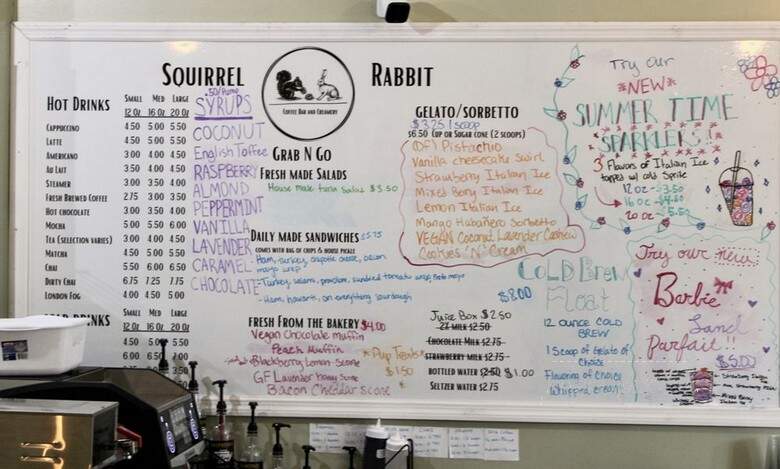 SQUIRREL
RABBIT
COFFEE BAR AND CREAMERY
HOT DRINKS
SMALL MED LARGE
12 OZ 16 OZ 20 OZ
CAPPUCCINO 4.50 5.00 5.50
LATTE 4.50 5.00 5.50
AMERICANO 3.00 4.00 4.50
AU LAIT 3.50 4.00 4.50
STEAMER 3.00 3.50 4.00
FRESH BREWED COFFEE 2.75 3.00 3.50
HOT CHOCOLATE 3.00 3.50 4.00
MOCHA 5.00 5.50 6.00
TEA (SELECTION VARIES) 3.00 4.00 4.50
MATCHA 4.50 5.00 5.50
CHAI 5.50 6.00 6.50
DIRTY CHAI 6.75 7.25 7.75
LONDON FOG 4.00 4.50 5.00
DRINKS
SMALL MED LARGE
12 OZ 16 OZ 20 OZ
4.50 5.00 5.50
.50/Pump
SYRUPS
COCONUT
English Toffee
RASPBERRY
ALMOND
PEPPERMINT
VANILLA
LAVENDER
CARAMEL
CHOCOLATE
GRAB N GO
FRESH MADE SALADS
House made tuna salad $3.50
DAILY MADE SANDWICHES
COMES WITH BAG OF CHIPS & HOUSE PICKLE
FRESH FROM THE BAKERY $4.00
Vegan Chocolate muffin
Peach Muffin
Blackberry Lemon Scone
GF Lavender honey Scone
Bacon Cheddar scone
Pup Treats
$1.50
GELATO/SORBETTO
$3.25 1 scoop
$6.50 CUP OR SUGAR CONE (2 SCOOPS)
(DF) Pistachio
Vanilla cheesecake swirl
Strawberry Italian Ice
Mixed Berry Italian Ice
Lemon Italian Ice
Mango Habañero Sorbetto
VEGAN Coconut Lavender Cashew
Cookies 'N' Cream
Juice Box $2.50
2% MILK $2.50
CHOCOLATE MILK $2.75
STRAWBERRY MILK $2.75
BOTTLED WATER $2.50 $1.00
SELTZER WATER $2.75
$8.00
COLD Brew
Float
12 OUNCE COLD
BREW
1 Scoop of Gelato of
Choice
Flavoring of choice
Whipped cream
Try our
*NEW*
SUMMER TIME
SPARKLERS!!
3 Flavors of Italian Ice
topped w/ cold Sprite
12 oz - 3.50
16 oz - 4.50
20 oz - 5.50
Try our new
Barbie
Land
Parfait!!
$5.00